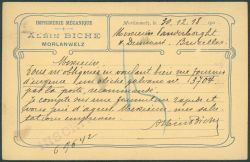 IMPRIMERIE MÉCANIQUE
Alsin BICHE
MORLANWELZ
Morlanwelz, le 30.12.98
Monsieur Vanderborght
r. Bruxelles
Monsieur
Vous m'obligerez en voulant bien me fournir
d'urgence 1 cliché galvano n° 13704
par la poste, recommandé.
Je compte sur une fourniture rapide et
vous prie d'agréer Monsieur, mes salu-
tations empressées
Biche